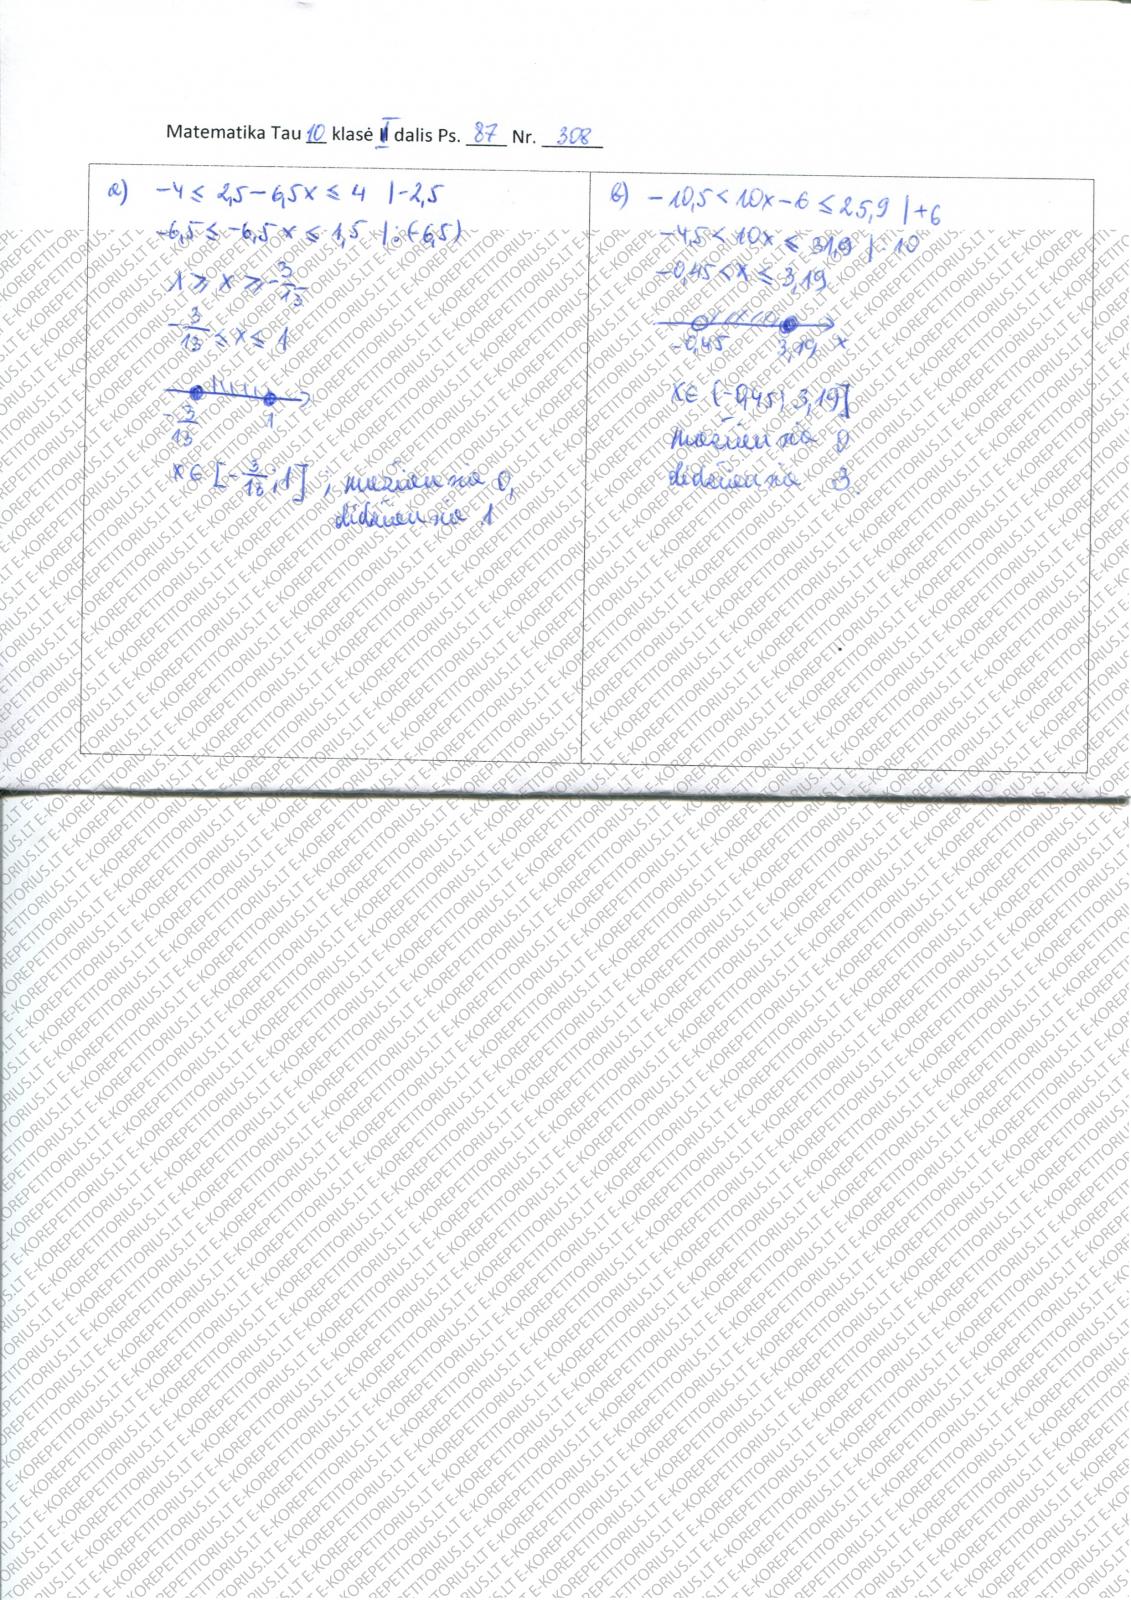 Matematika Tau 10 klasė I dalis Ps. 87 Nr. 308
a) -4 ≤ 2,5 - 6,5x ≤ 4 |-2,5
-6,5 ≤ -6,5x ≤ 1,5 |:(-6,5)
1 ≥ x ≥ -3/13
-3/13 ≤ x ≤ 1
-3/13 1
x ∈ [-3/13; 1] ; mažiausia 0,
didžiausia 1
b) -10,5 < 10x - 6 ≤ 25,9 |+6
-4,5 < 10x ≤ 31,9 |:10
-0,45 < x ≤ 3,19
-0,45 3,19 x
x ∈ (-0,45; 3,19]
mažiausia 0
didžiausia 3.
E-KOREPETITORIUS.LT